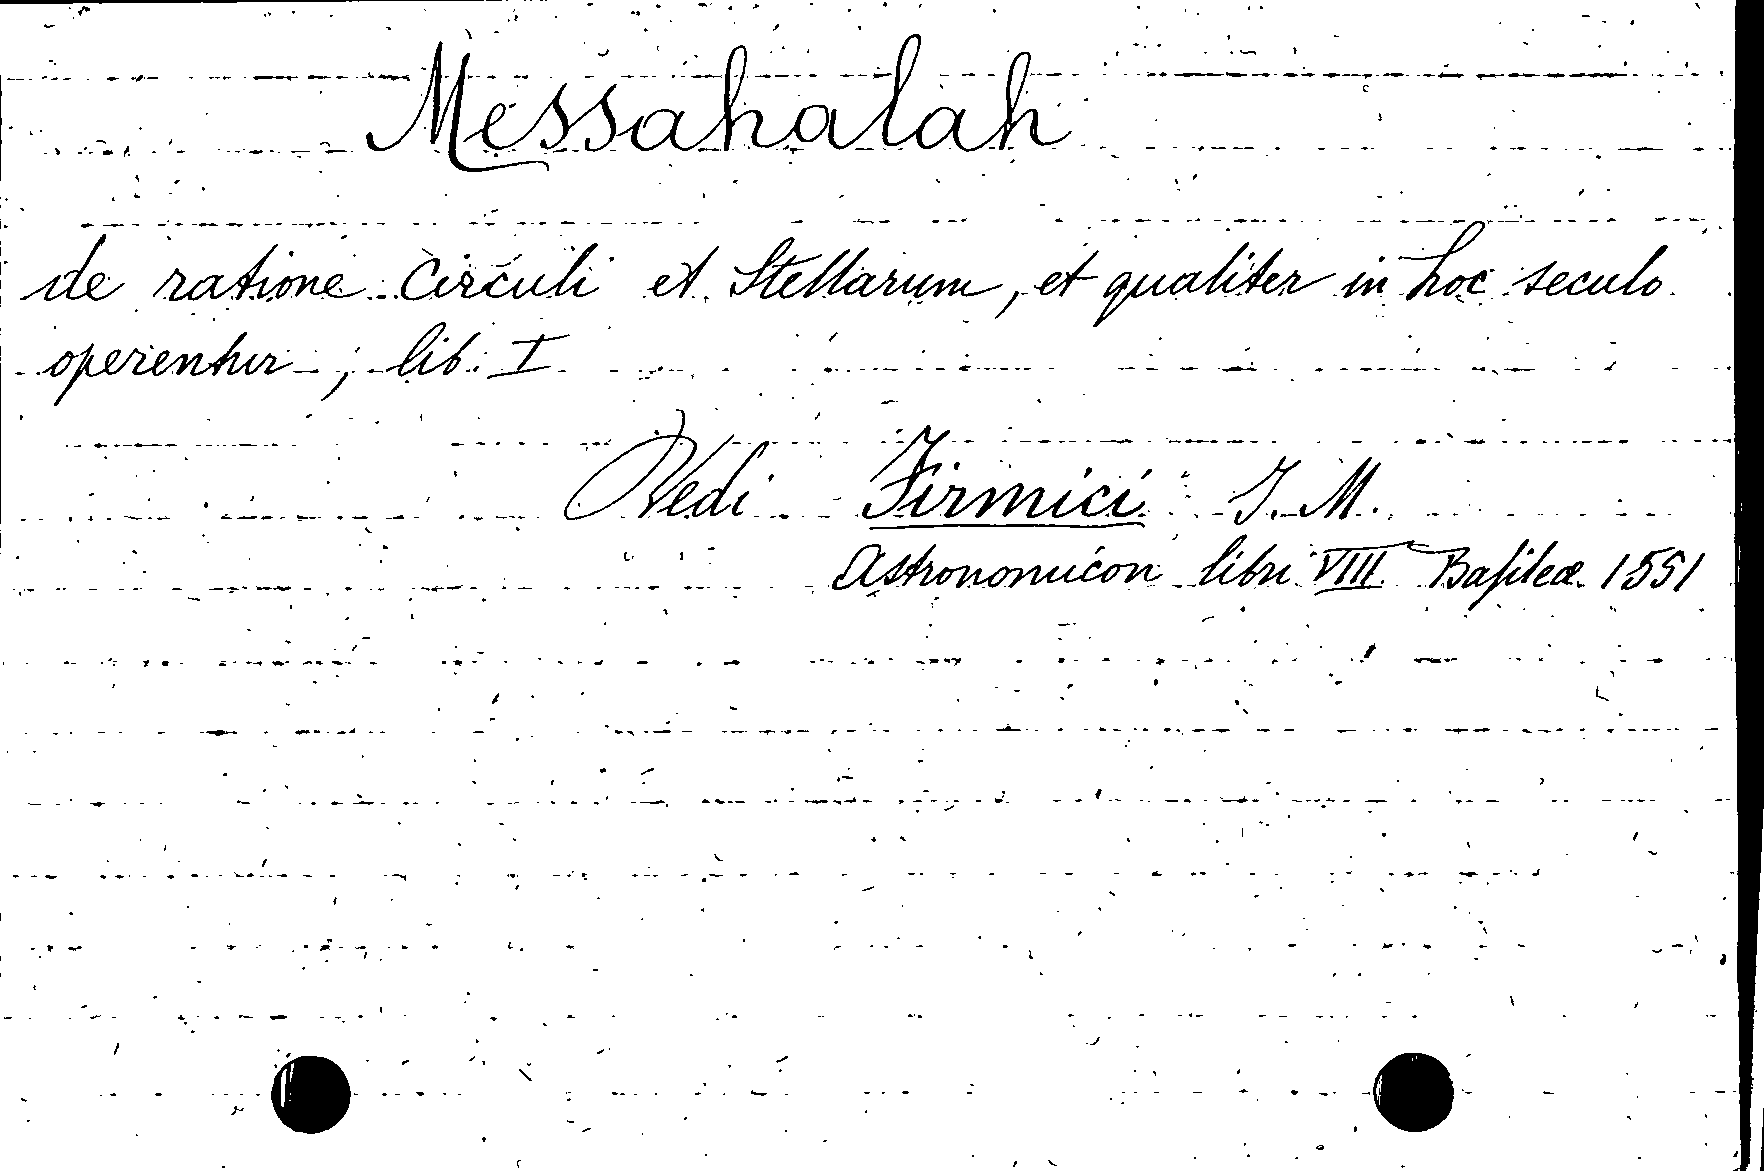 Messahalah
de ratione Circuli et Stellarum, et qualiter in hoc seculo
operentur; lib. I
Vedi Firmici J. M.
Astronomicon libri VIII Basileæ 1551